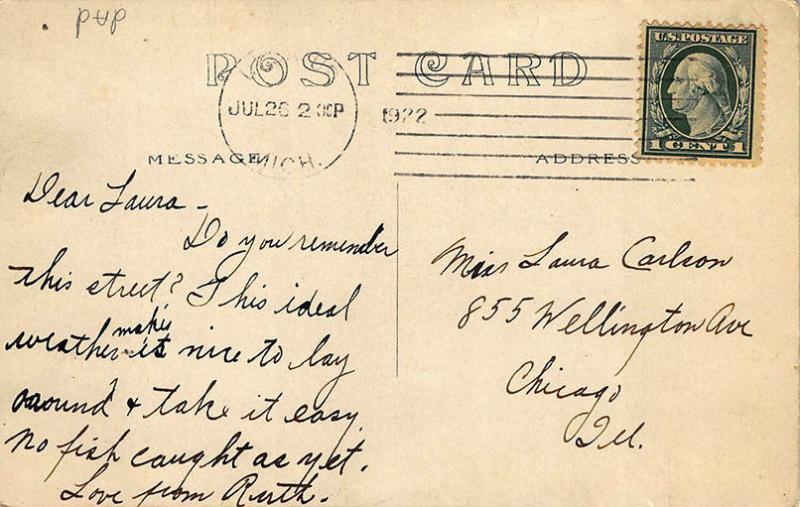 pap
POST CARD
U.S. POSTAGE
1 CENT 1
JUL 26 2 30P
1922
MICH.
MESSAGE
ADDRESS
Dear Laura -
Do you remember
this street? This ideal
weather makes it nice to lay
around & take it easy.
No fish caught as yet.
Love from Ruth.
Miss Laura Carlson
855 Wellington Ave
Chicago
Ill.